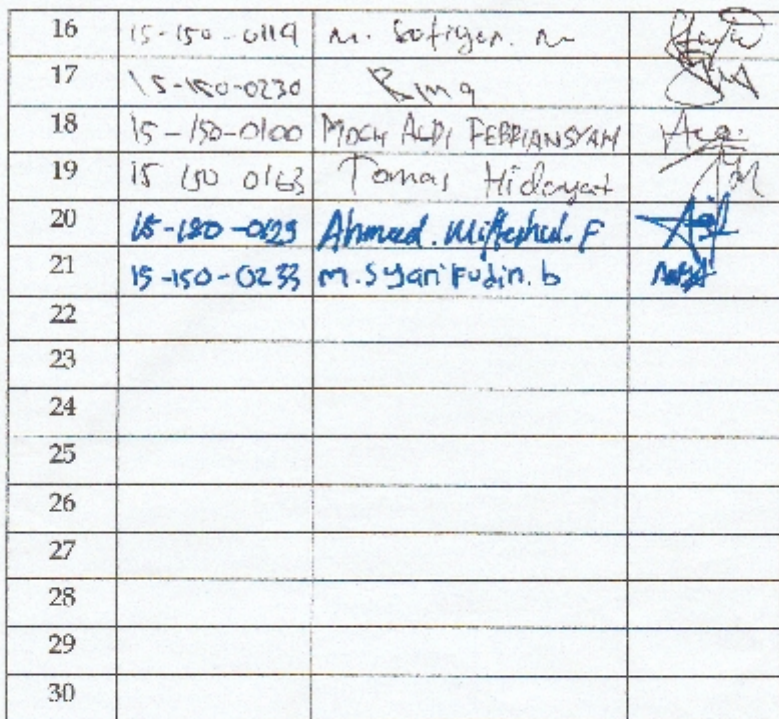 16 15-150-0119 M. Sofiyan. M
17 15-150-0230 Rima
18 15-150-0100 MOCH ALDI FEBRIANSYAH
19 15 150 0163 Tomas Hidayat
20 15-150-0129 Ahmad. Miftachul. F
21 15-150-0233 M. Syarifudin. b
22
23
24
25
26
27
28
29
30